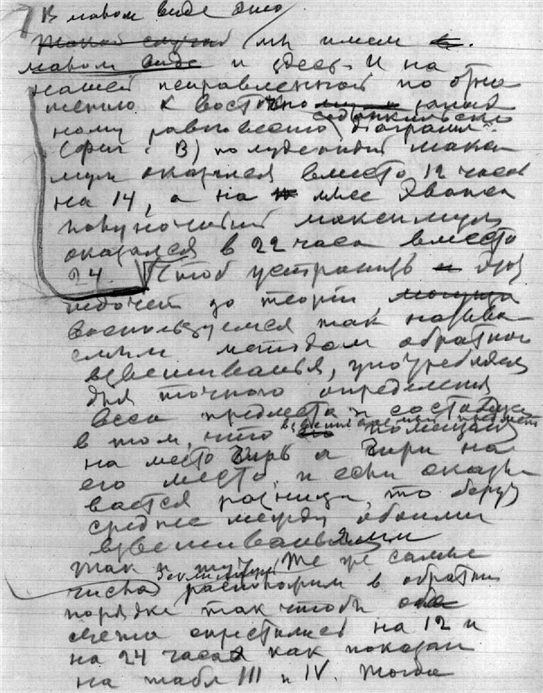 В малом виде это
~~Такой случай~~ мы имеем в.
малом виде и здесь. И на
нашей неправленной по отно
шению к восточно запад
ному равновесию диаграмме
(фиг. В) полуденный макси
мум оказался вместо 12 часов
на 14, а на мыс Эванса
полуночный максимум
оказался в 22 часа вместо
24. Чтоб устранить этот
недочет до теории
воспользуемся так называ
емым методом обратного
взвешиванья, употребляемым
для точного определения
веса предмета и состоящим
в том, что взвешиваемый предмет помещают
на место гирь а гири на
его место, и если оказы
вается разница, то берут
среднее между обоими
взвешиваньями
Так и тут. Те же самые
числа расположим в обратном
порядке так чтобы оба
счета сместились на 12 и
на 24 часа как показано
на табл III и IV. Тогда